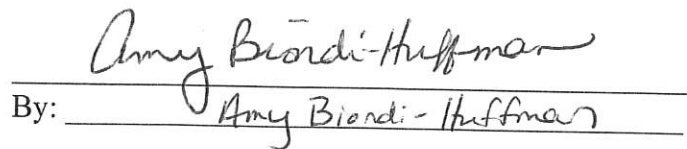 Amy Biondi-Huffman
By: Amy Biondi-Huffman